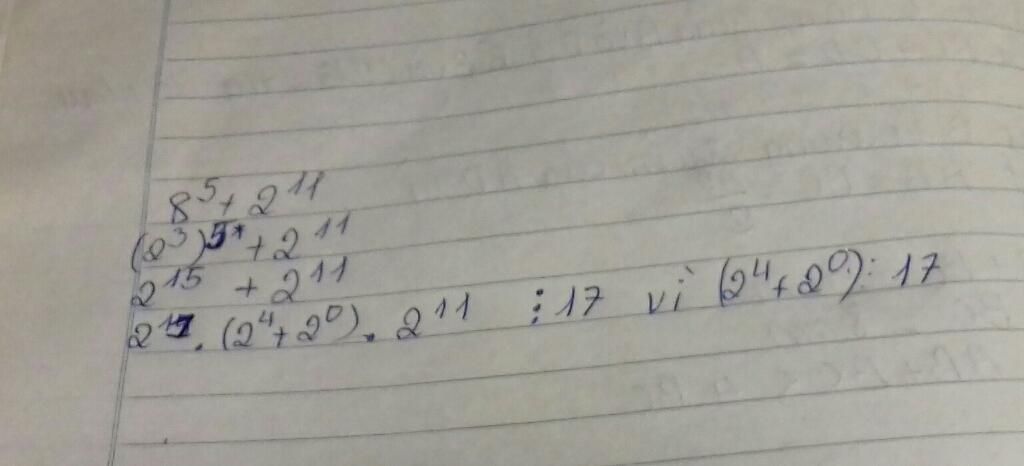 8⁵ + 2¹¹
(2³)⁵ + 2¹¹
2¹⁵ + 2¹¹
2¹¹ . (2⁴ + 2⁰) . 2¹¹ ⋮ 17 vì (2⁴ + 2⁰) : 17